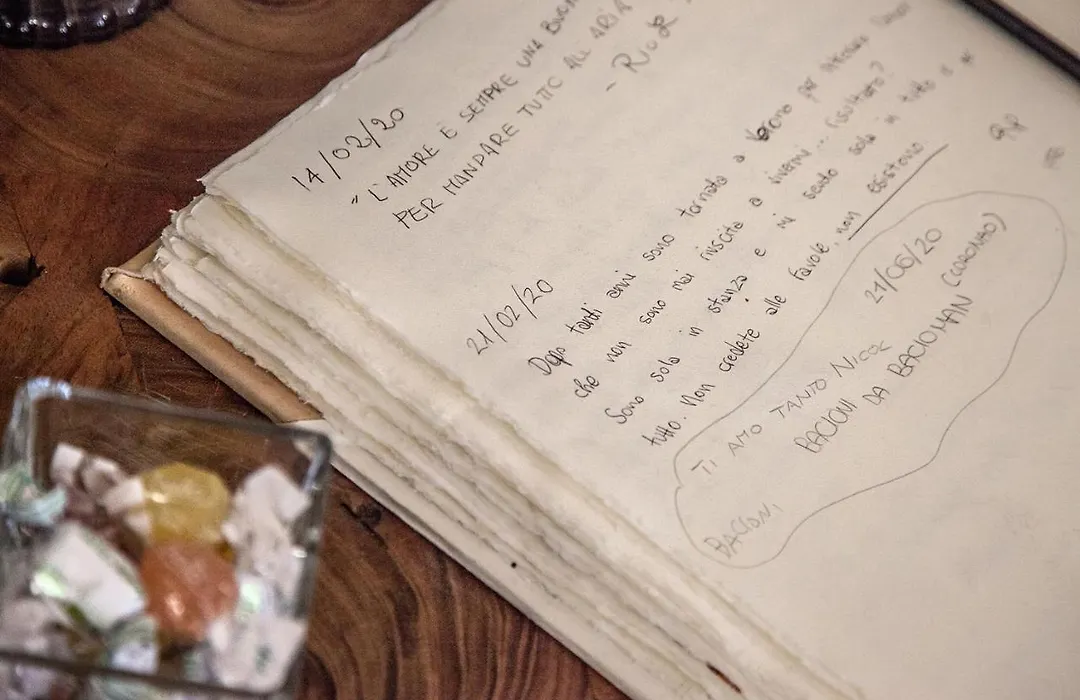 14/02/20
"L'AMORE È SEMPRE UNA BUONA
PER MANDARE TUTTO ALL'ARIA
21/02/20
Dopo tanti anni sono tornata a Verona per
che non sono mai riuscita a
Sono sola in stanza e mi sento sola in tutto e x
tutto. Non credete alle favole, non esistono
21/06/20
TI AMO TANTO NICOL
BACIONI DA BACIOMAN
BACIONI